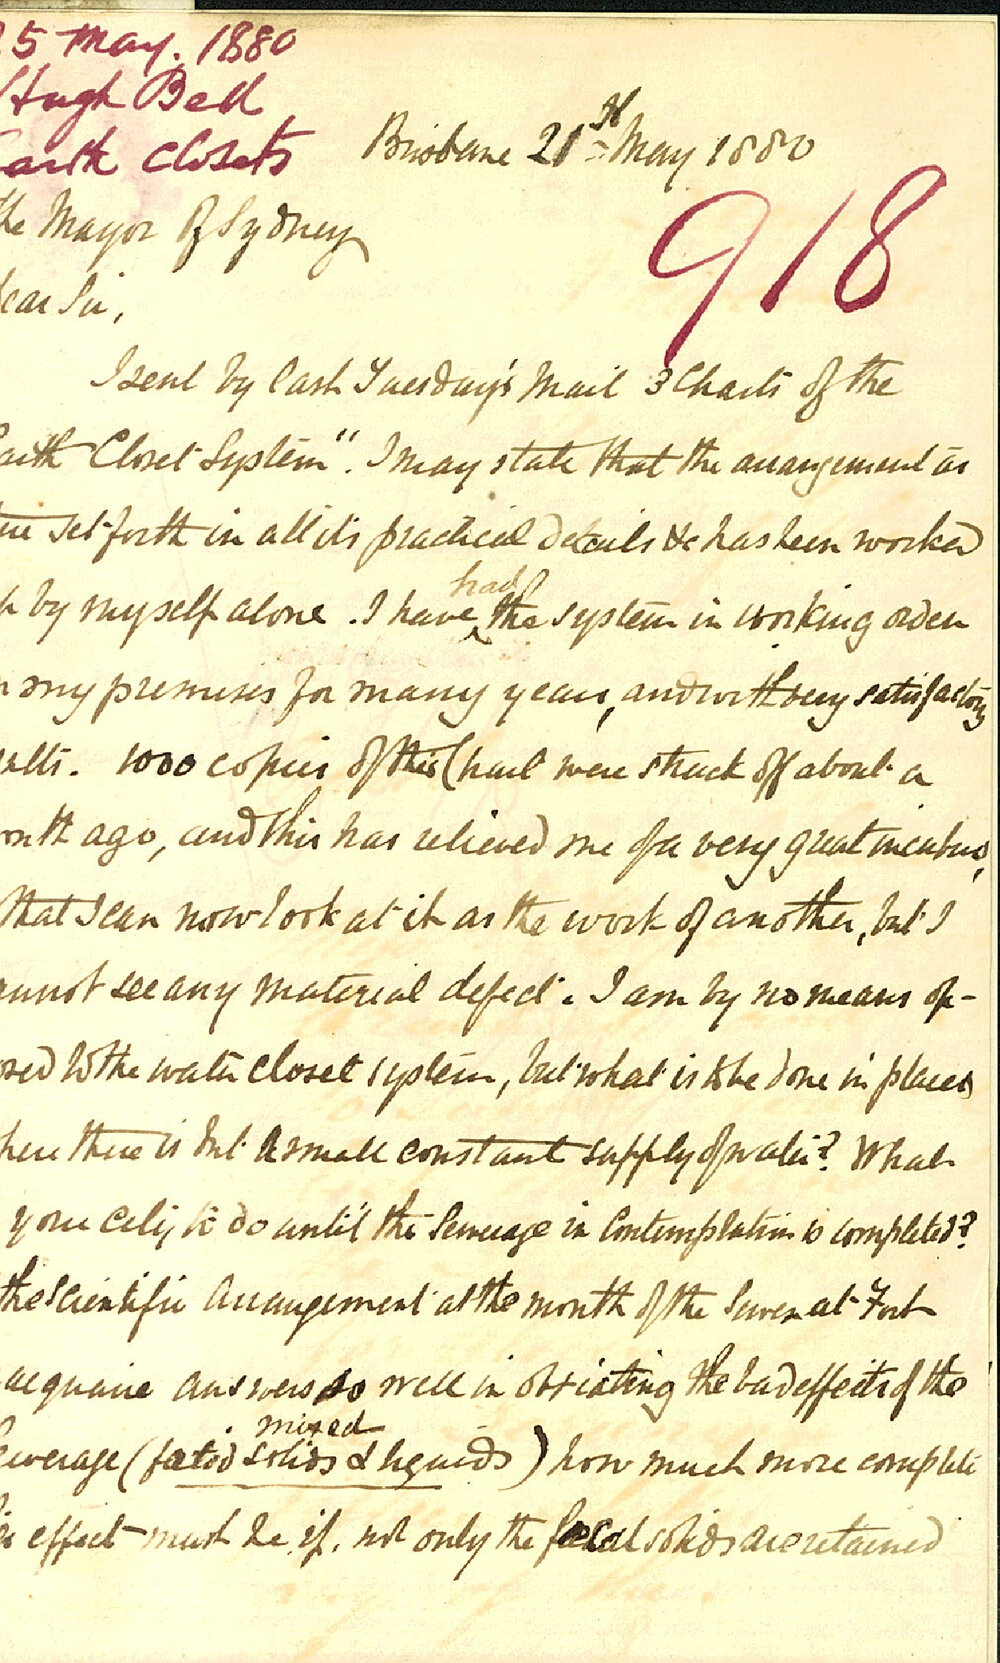 25 May. 1880
Hugh Bell
Earth Closets
Brisbane 21st May 1880
918
the Mayor of Sydney
Dear Sir,
I sent by last Tuesday's Mail 3 Charts of the
Earth Closet System". I may state that the arrangement as
set forth in all its practical details &c has been worked
by myself alone. I have had the system in working order
on my premises for many years, and with very satisfactory
results. 1000 copies of this Chart were struck off about a
month ago, and this has relieved me of a very great incubus,
that I can now look at it as the work of another, but I
cannot see any material defect. I am by no means op-
posed to the water closet system, but what is to be done in places
where there is but a small constant supply of water? What
your city to do until the Sewerage in Contemplation is completed?
the Scientific Arrangement at the mouth of the Sewer at Fort
Macquarie answers so well in obviating the bad effects of the
Sewerage (foetid mixed solids & liquids) how much more complete
effect must be if, not only the foecal solids are retained